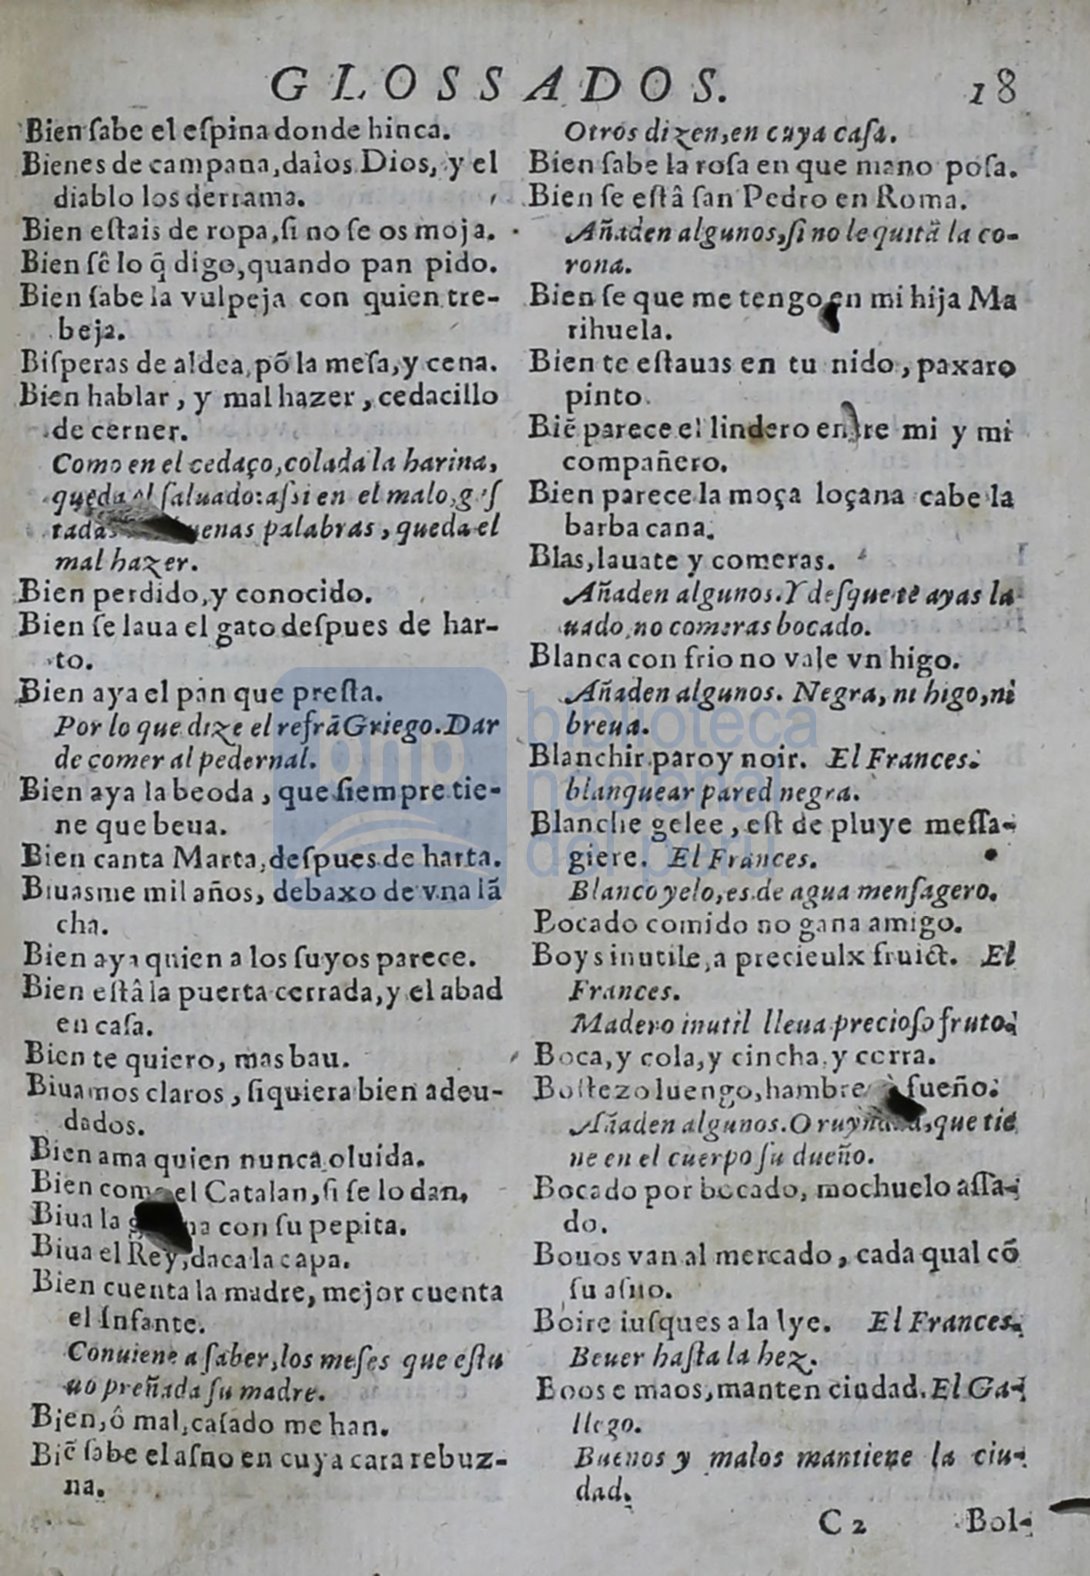 GLOSSADOS. 18
Bien ſabe el eſpina donde hinca.
Bienes de campana, dalos Dios, y el
diablo los derrama.
Bien eſtais de ropa, ſi no ſe os moja.
Bien ſê lo q̃ digo, quando pan pido.
Bien ſabe la vulpeja con quien tre-
beja.
Biſperas de aldea, põ la meſa, y cena.
Bien hablar, y mal hazer, cedacillo
de cerner.
Como en el cedaço, colada la harina,
queda el ſaluado: aſsi en el malo, g ſ
tadas uenas palabras, queda el
mal hazer.
Bien perdido, y conocido.
Bien ſe laua el gato deſpues de har-
to.
Bien aya el pan que preſta.
Por lo que dize el refrã Griego. Dar
de comer al pedernal.
Bien aya la beoda, que ſiempre tie-
ne que beua.
Bien canta Marta, deſpues de harta.
Biuasme mil años, debaxo de vna lã
cha.
Bien aya quien a los ſuyos parece.
Bien eſtâ la puerta cerrada, y el abad
en caſa.
Bien te quiero, mas bau.
Biuamos claros, ſiquiera bien adeu-
dados.
Bien ama quien nunca oluida.
Bien come el Catalan, ſi ſe lo dan.
Biua la g na con ſu pepita.
Biua el Rey, daca la capa.
Bien cuenta la madre, mejor cuenta
el Infante.
Conuiene a ſaber, los meſes que eſtu
uo preñada ſu madre.
Bien, ô mal, caſado me han.
Biẽ ſabe el aſno en cuya cara rebuz-
na.
Otros dizen, en cuya caſa.
Bien ſabe la roſa en que mano poſa.
Bien ſe eſtâ ſan Pedro en Roma.
Añaden algunos, ſi no le quitã la co-
rona.
Bien ſe que me tengo en mi hija Ma
rihuela.
Bien te eſtauas en tu nido, paxaro
pinto.
Biẽ parece el lindero entre mi y mi
compañero.
Bien parece la moça loçana cabe la
barba cana.
Blas, lauate y comeras.
Añaden algunos. Y deſque te ayas la
uado, no comeras bocado.
Blanca con frio no vale vn higo.
Añaden algunos. Negra, ni higo, ni
breua.
Blanchir paroy noir. El Frances.
blanquear pared negra.
Blanche gelee, eſt de pluye meſſa-
giere. El Frances.
Blanco yelo, es de agua menſagero.
Bocado comido no gana amigo.
Boys inutile, a precieulx fruict. El
Frances.
Madero inutil lleua precioſo fruto.
Boca, y cola, y cincha, y cerra.
Boſtezo luengo, hambre ò ſueño.
Añaden algunos. O ruyndad, que tie
ne en el cuerpo ſu dueño.
Bocado por bocado, mochuelo aſſa-
do.
Bouos van al mercado, cada qual cõ
ſu aſno.
Boire iuſques a la lye. El Frances.
Beuer haſta la hez.
Boos e maos, manten ciudad. El Ga-
llego.
Buenos y malos mantiene la ciu-
dad.
C 2 Bol-
biblioteca
nacional
del perú
bnp